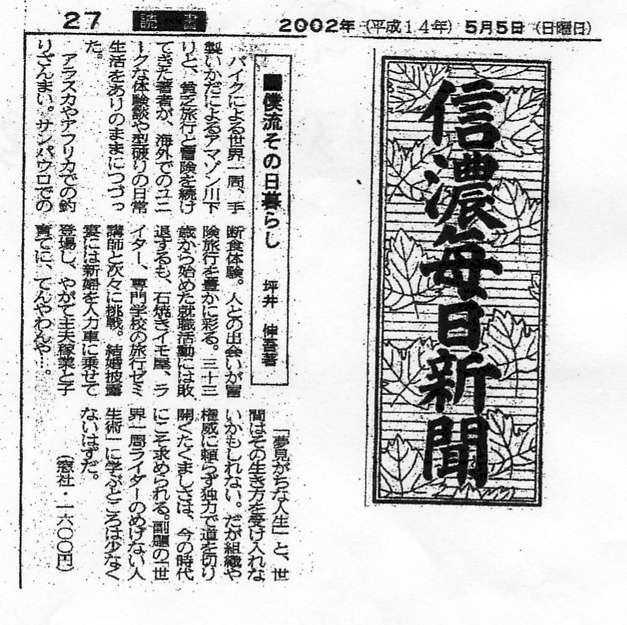 27 読書 2002年(平成14年)5月5日(日曜日)
信濃毎日新聞
■僕流その日暮らし 坪井 伸吾著
バイクによる世界一周、手
製いかだによるアマゾン川下
りと、貧乏旅行と冒険を続け
てきた著者が、海外でのユニ
ークな体験談や型破りの日常
生活をありのままにつづっ
た。
アラスカやアフリカでの釣
りざんまい。サンパウロでの
断食体験。人との出会いが冒
険旅行を豊かに彩る。三十三
歳から始めた就職活動には敗
退するも、石焼きイモ屋、ラ
イター、専門学校の旅行ゼミ
講師と次々に挑戦。結婚披露
宴には新婦を人力車に乗せて
登場し、やがて主夫稼業と子
育てに、てんやわんや…。
「夢見がちな人生」と、世
間はその生き方を受け入れな
いかもしれない。だが組織や
権威に頼らず独力で道を切り
開くたくましさは、今の時代
にこそ求められる。副題の「世
界一周ライダーのめげない人
生術」に学ぶところは少なく
ないはずだ。
(窓社・一六〇〇円)